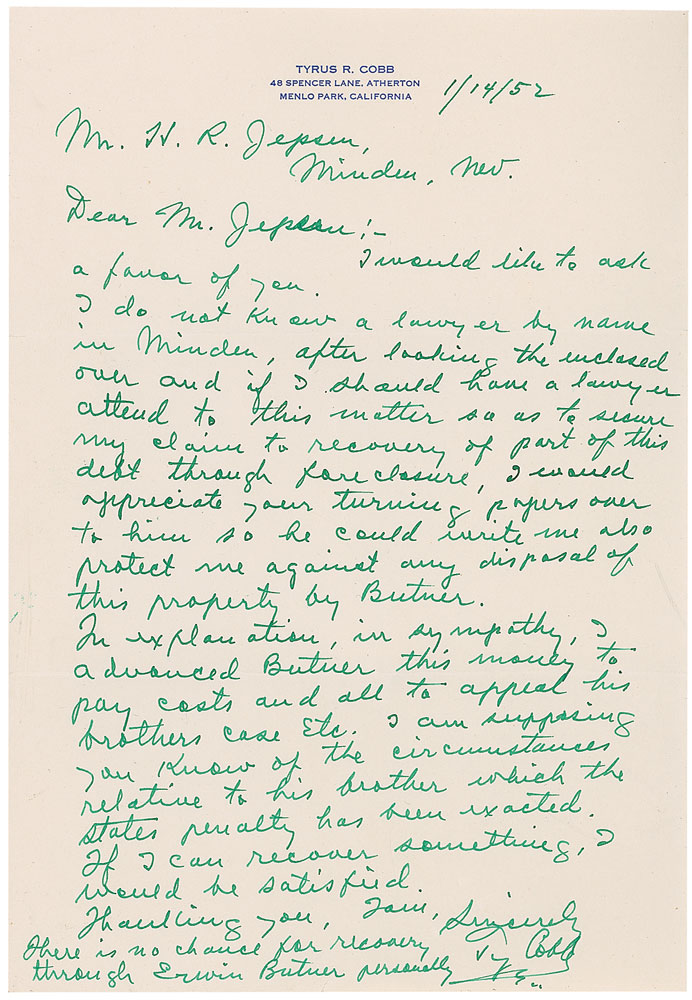 TYRUS R. COBB
48 SPENCER LANE, ATHERTON
MENLO PARK, CALIFORNIA
1/14/52
Mr. H. R. Jepsen,
Minden, Nev.
Dear Mr. Jepsen:-
I would like to ask
a favor of you.
I do not know a lawyer by name
in Minden, after looking the enclosed
over and if I should have a lawyer
attend to this matter so as to secure
my claim to recovery of part of this
debt through foreclosure, I would
appreciate your turning papers over
to him so he could write me also
protect me against any disposal of
this property by Butner.
In explanation, in sympathy, I
advanced Butner this money to
pay costs and all to appeal his
brothers case Etc. I am supposing
you know of the circumstances
relative to his brother which the
states penalty has been exacted.
If I can recover something, I
would be satisfied.
Thanking you, I am, Sincerely
Ty Cobb
There is no chance for recovery
through Erwin Butner personally